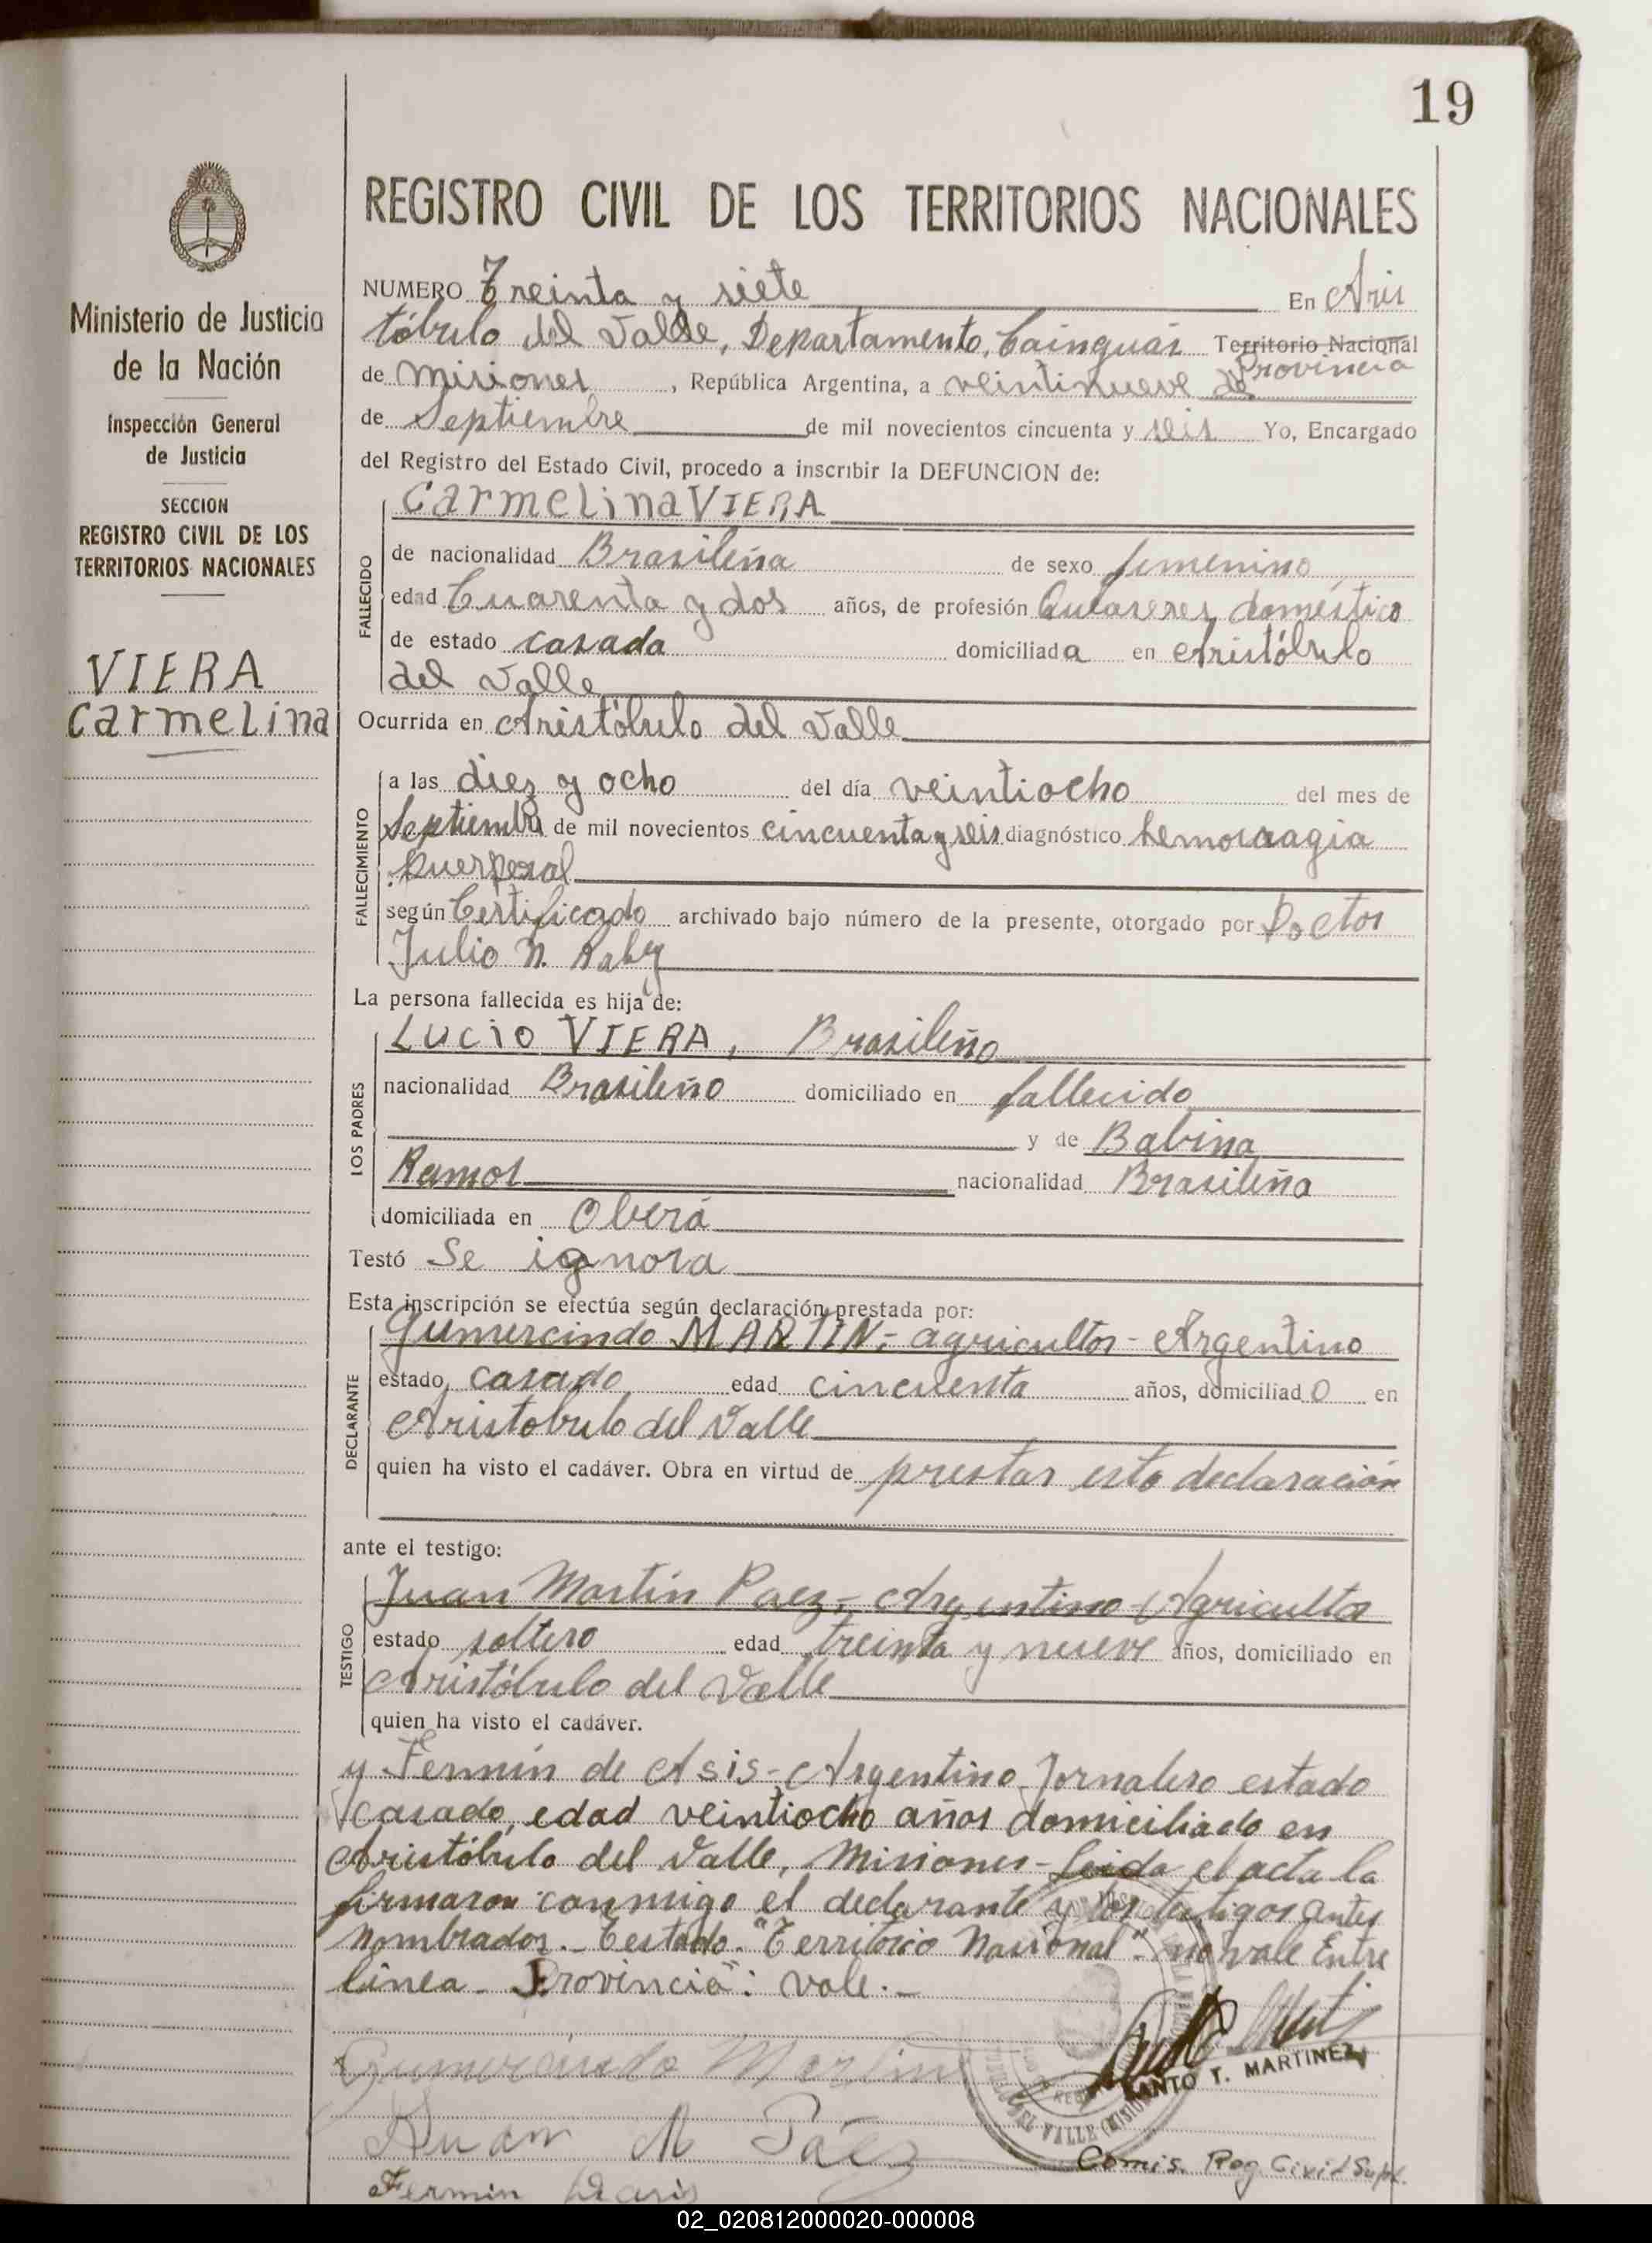 19
Ministerio de Justicia
de la Nación
Inspección General
de Justicia
SECCION
REGISTRO CIVIL DE LOS
TERRITORIOS NACIONALES
VIERA
Carmelina
REGISTRO CIVIL DE LOS TERRITORIOS NACIONALES
NUMERO Treinta y siete En Aris
tóbulo del Valle, Departamento, Cainguás Territorio Nacional
Provincia
de Misiones, República Argentina, a veintinueve de
de Septiembre de mil novecientos cincuenta y seis Yo, Encargado
del Registro del Estado Civil, procedo a inscribir la DEFUNCION de:
Carmelina VIERA
FALLECIDO
de nacionalidad Brasileña de sexo femenino
edad Cuarenta y dos años, de profesión Queaseres doméstico
de estado casada domiciliada en Aristóbulo
del Valle
Ocurrida en Aristóbulo del Valle
FALLECIMIENTO
a las diez y ocho del día veintiocho del mes de
Septiembre de mil novecientos cincuenta y seis diagnóstico hemorragia
puerperal
según Certificado archivado bajo número de la presente, otorgado por Doctor
Julio N. Raby
La persona fallecida es hija de:
LOS PADRES
Lucio VIERA, Brasileño
nacionalidad Brasileño domiciliado en fallecido
y de Babina
Ramos nacionalidad Brasileña
domiciliada en Oberá
Testó Se ignora
Esta inscripción se efectúa según declaración prestada por:
DECLARANTE
Gumercindo MARTIN,- agricultor - Argentino
estado casado edad cincuenta años, domiciliado en
Aristobulo del Valle
quien ha visto el cadáver. Obra en virtud de prestar esta declaración
ante el testigo:
TESTIGO
Juan Martín Paez,- Argentino - Agricultor
estado soltero edad treinta y nueve años, domiciliado en
Aristóbulo del Valle
quien ha visto el cadáver.
y Fermín de Asis - Argentino - Jornalero estado
casado, edad veintiocho años domiciliado en
Aristóbulo del Valle, Misiones - Leida el acta la
firmaron conmigo el declarante y los testigos antes
nombrados.- Testado: "Territorio Nacional": no vale Entre
línea - Provincia": vale.-
Gumercindo Martin
SANTO T. MARTINEZ
Juan M Páez
Comis. Reg Civil Supl.
Fermin
02_020812000020-000008